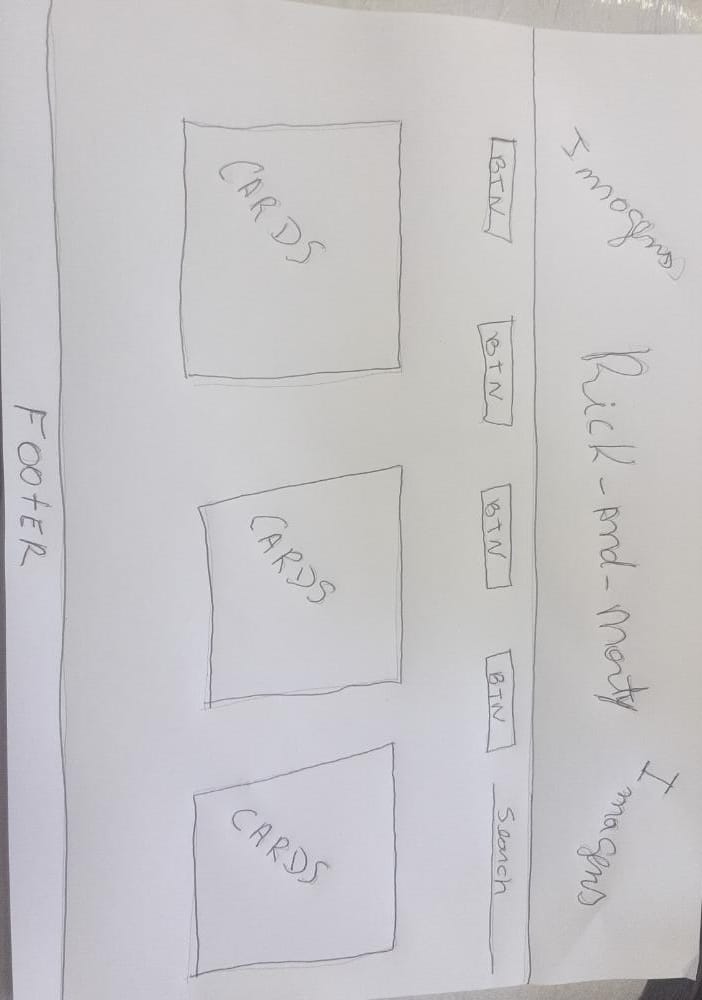 Imagens Rick-and-morty Imagens
BTN BTN BTN BTN Search
CARDS CARDS CARDS
FOOtER